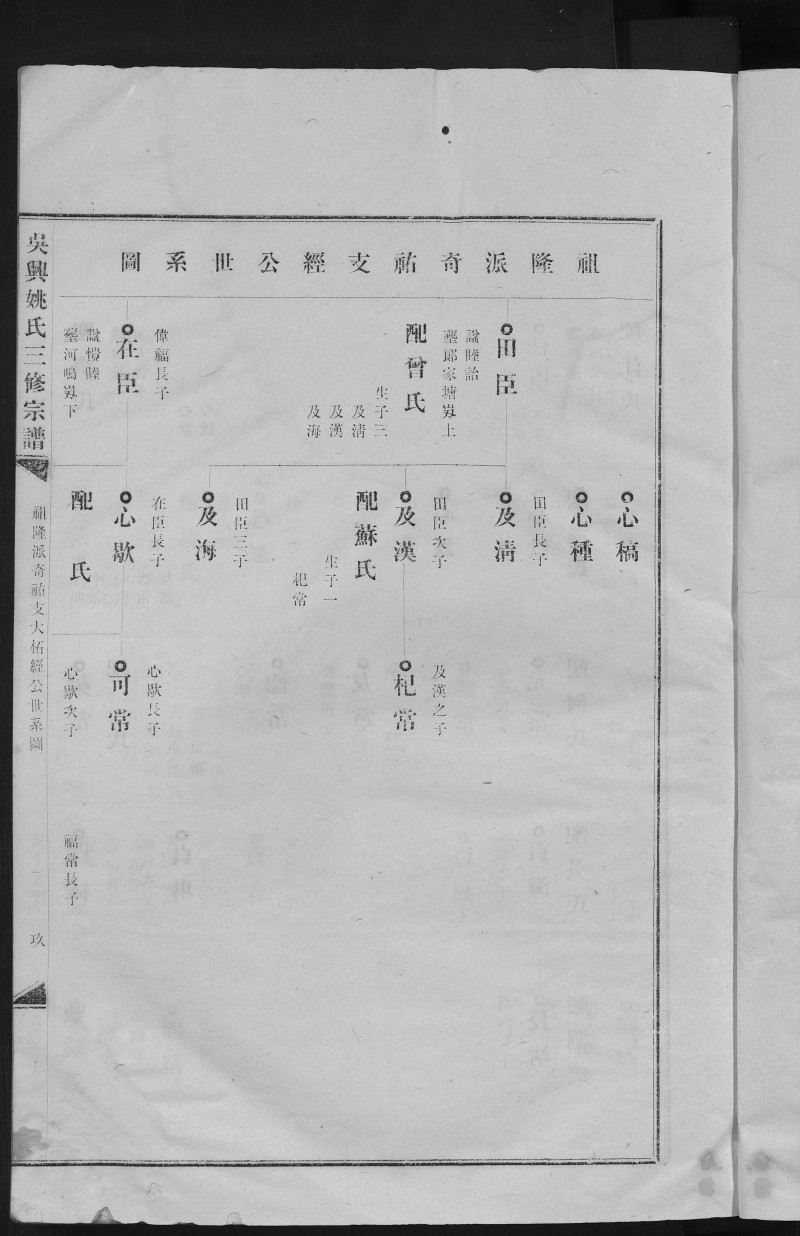 祖隆派奇祐支經公世系圖
田臣
諡睦詒
塟郞家塘嶺上
配曾氏
生子三
及淸
及漢
及海
偉福長子
在臣
諡愷睦
塟河鳴嶺下
心稿
心種
田臣長子
及淸
田臣次子
及漢
配蘇氏
生子一
杞常
田臣三子
及海
在臣長子
心歇
配 氏
及漢之子
杞常
心歇長子
可常
心歇次子
福常長子
吳興姚氏三修宗譜
祖隆派奇祐支大柘經公世系圖
玖